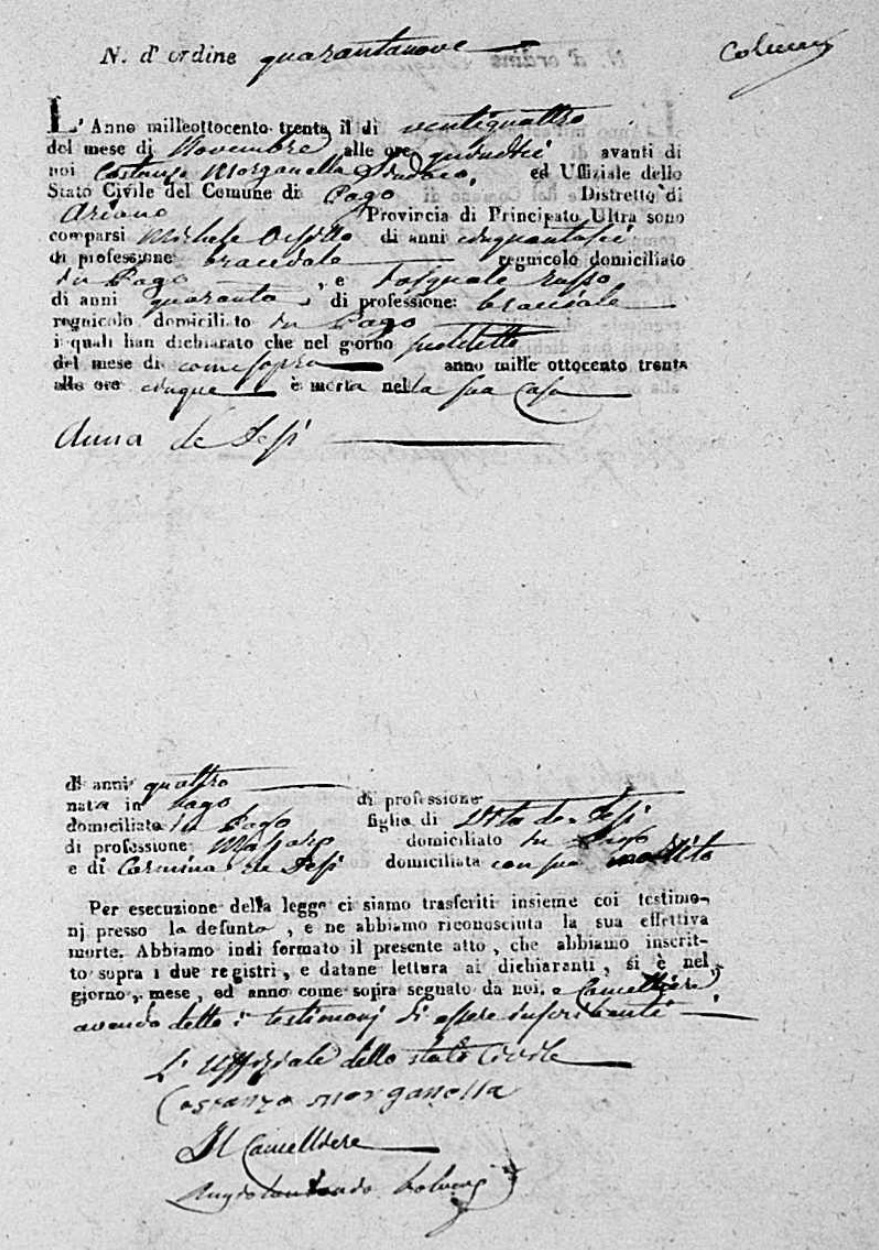 N. d'ordine quarantanove
L'Anno milleottocento trenta il di ventiquattro
del mese di Novembre alle ore quindici avanti di
noi Costanzo Morganella Sindaco, ed Uffiziale dello
Stato Civile del Comune di Pago Distretto di
Ariano Provincia di Principato Ultra sono
comparsi Michele di anni cinquantasei
di professione bracciale regnicolo domiciliato
in Pago, e Pasquale Russo
di anni quaranta, di professione: bracciale
regnicolo domiciliato in Pago
i quali han dichiarato che nel giorno suddetto
del mese di come sopra anno mille ottocento trenta
alle ore cinque è morta nella sua Casa
Anna de
di anni quattro
nata in Pago di professione
domiciliata in Pago figlia di Vito de
di professione Massaro domiciliato in Pago
e di Carmina de domiciliata con suo marito
Per esecuzione della legge ci siamo trasferiti insieme coi testimo-
nj presso la defunta, e ne abbiamo riconosciuta la sua effettiva
morte. Abbiamo indi formato il presente atto, che abbiamo inscrit-
to sopra i due registri, e datane lettura ai dichiaranti, si è nel
giorno, mese, ed anno come sopra segnato da noi, e Cancelliere
avendo detto i testimonj di essere inscribenti
L'Uffiziale dello stato Civile
Costanzo Morganella
Il Cancelliere